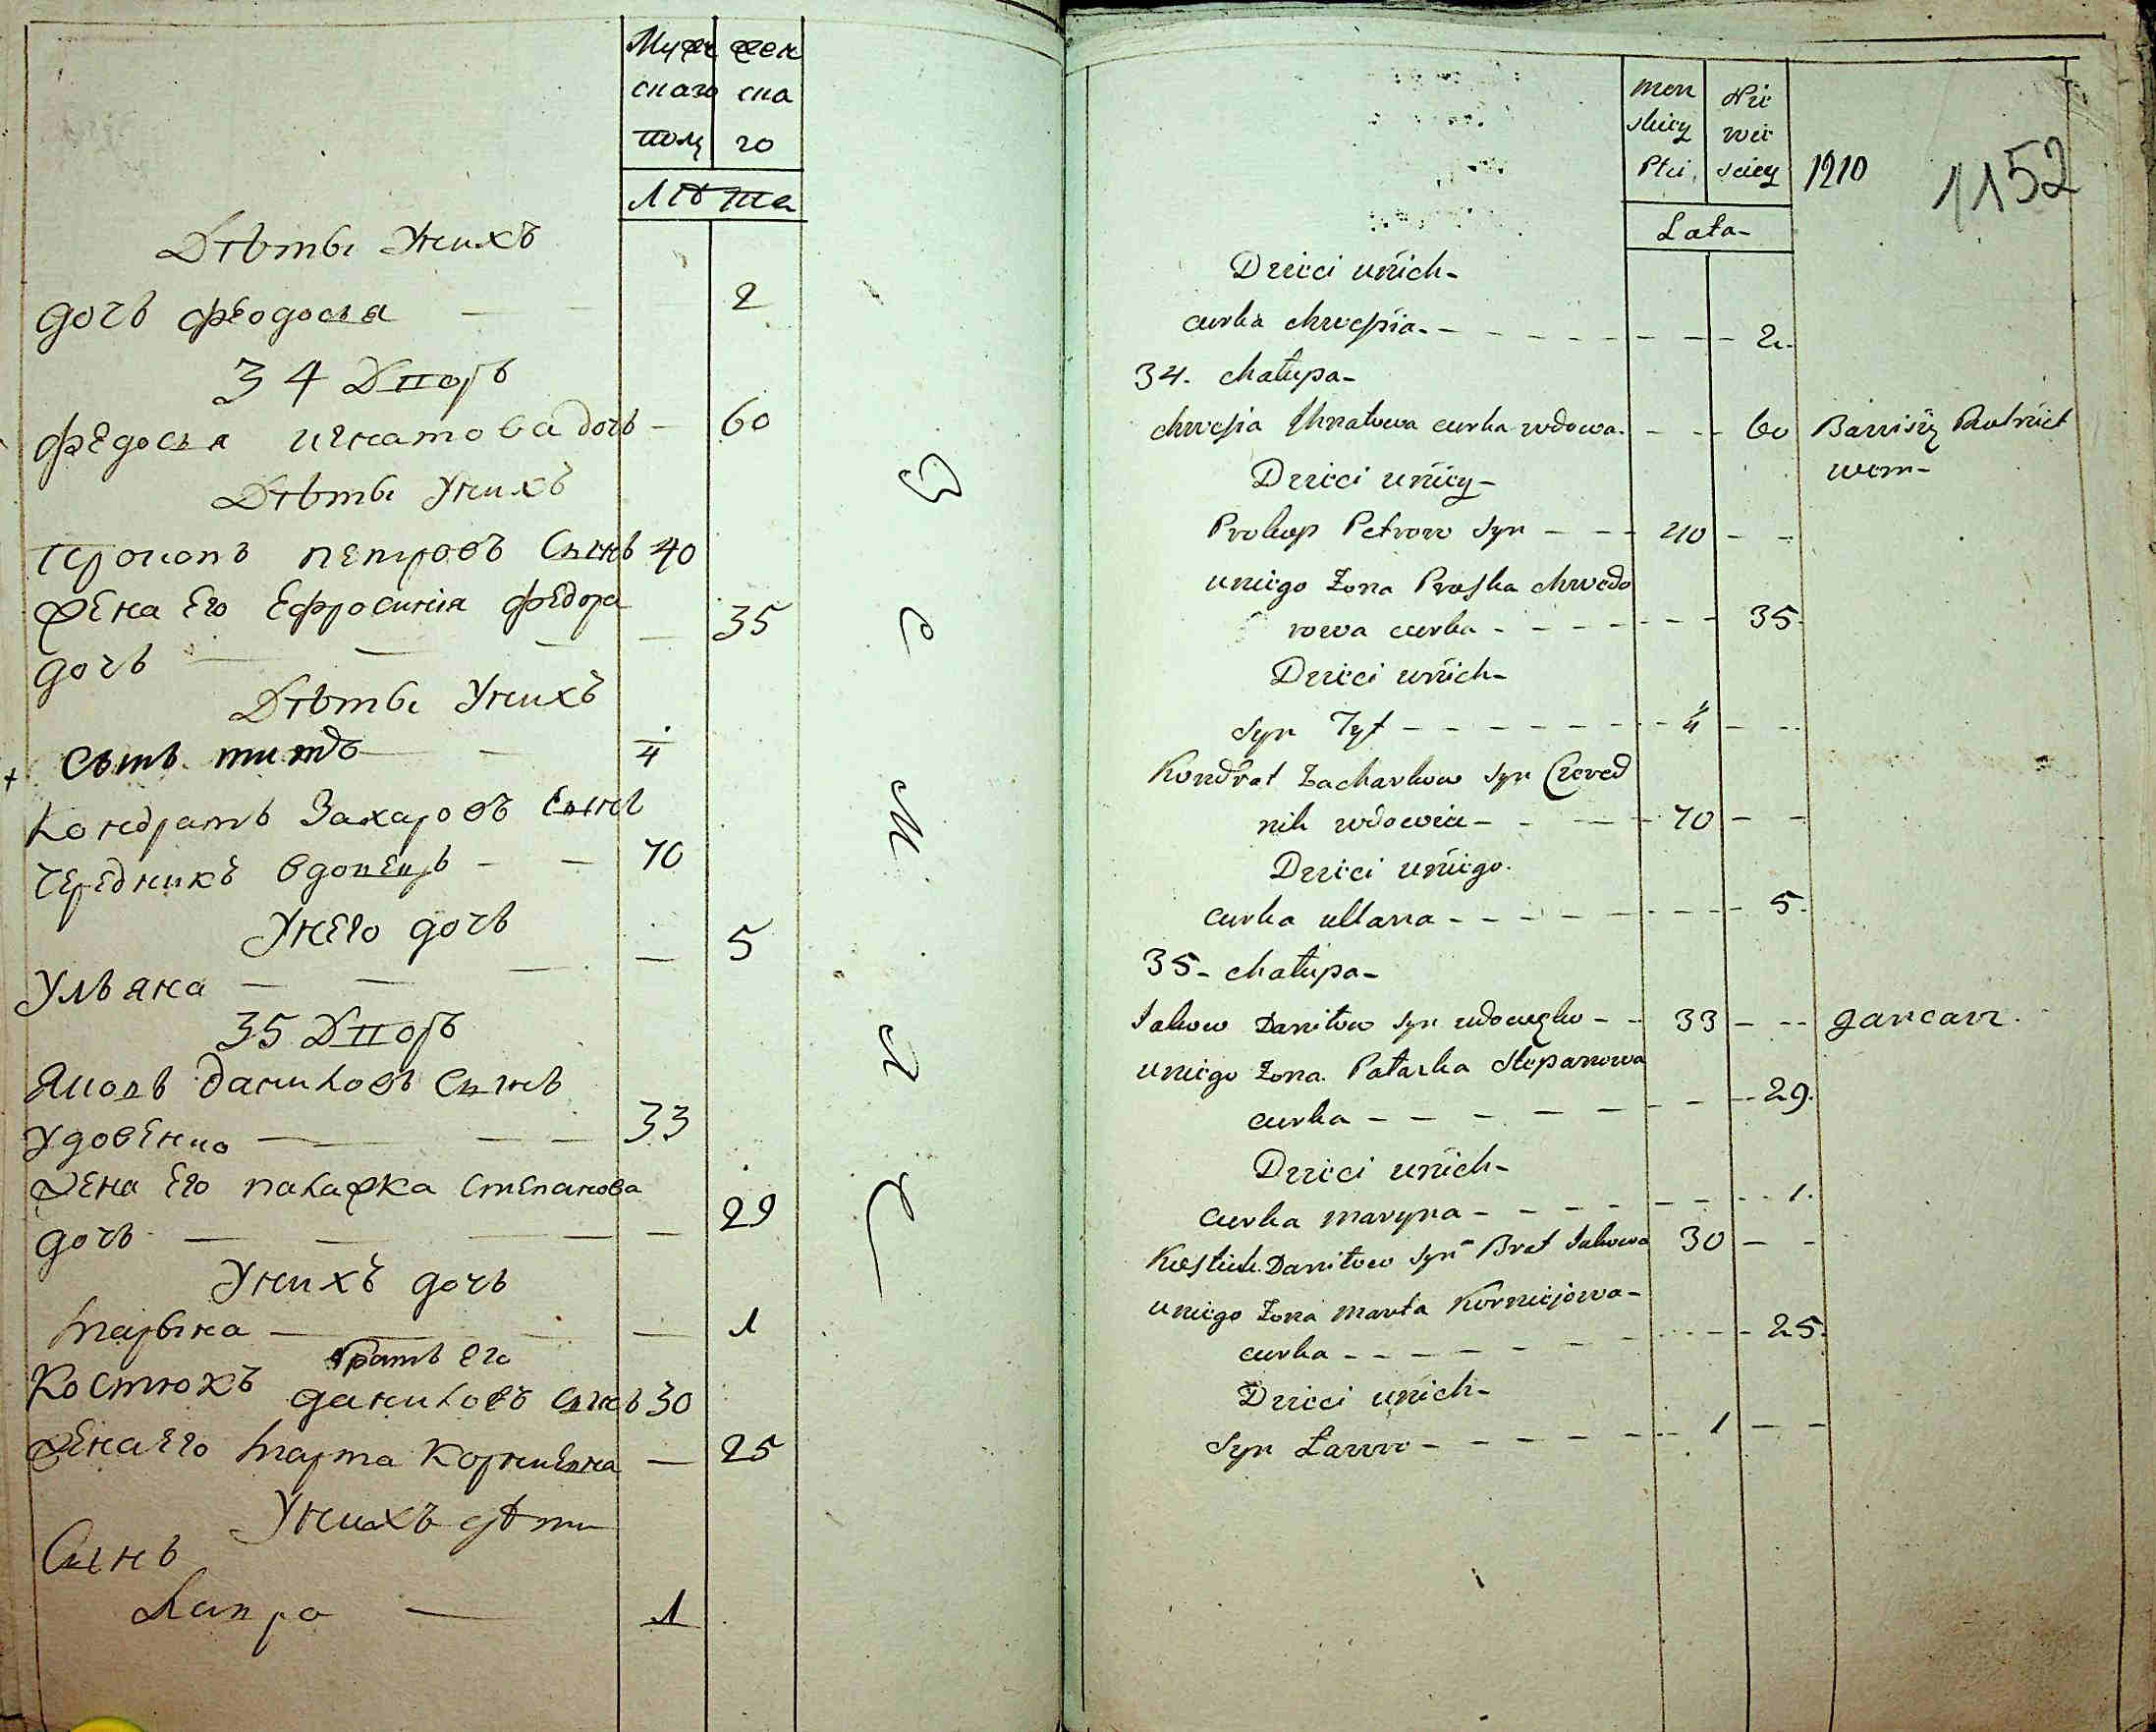 Муже жен
скаго ска
полу го
Лѣта
Дѣты Унихъ
дочь феодосья — — 2
34 Дворъ
федосья игнатова дочь — 60
Дѣты Унихъ
Прокопъ петровъ Сынъ 40
жена Его Ефросинія федора
дочь — — — — 35
Дѣты Унихъ
+ Сынъ титъ — — 4
Кондратъ Захаровъ Сынъ
чередникъ вдовецъ — — 70
Унего дочь
Ульяна — — — — 5
35 Дворъ
Яковъ даниловъ Сынъ
удовенко — — — 33
жена Его палажка степанова
дочь — — — — — 29
Унихъ дочь
Марына — — — 1
братъ его
Костюкъ даниловъ Сынъ 30
жена его Марта Корниевна — 25
Унихъ дѣти
Сынъ
Лавро — 1
men Nie
skiey wie
Płci sciey 1210 1152
Lata
Dzieci unich
curka chwesia 2.
34. chałupa
chwesia Ihnatowa curka wdowa 60
Dzieci uniey
Prokop Petrow syn 40
uniego Zona Proska chwedo
rowa curka 35.
Dzieci unich
syn Tyt 4
Kondrat Zacharkow syn Czered
nik wdowiec 70
Dzieci uniego
curka ullana 5.
35 chałupa
Jakow Daniłow syn udowęko 33 garcarz.
uniego Zona Pałaska stepanowa
curka 29.
Dzieci unich
curka maryna 1.
Kostiuk Daniłow syn Brat Jakowa 30
uniego Zona marta Korniejowa
curka 25.
Dzieci unich
syn Ławro 1